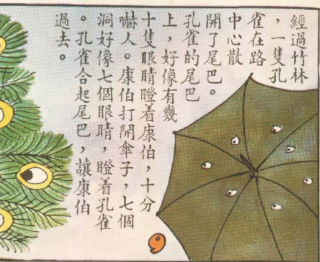 經過竹林
，一隻孔
雀在路
中心散
開了尾巴。
孔雀的尾巴
上，好像有幾
十隻眼睛瞪着康伯，十分
嚇人。康伯打開傘子，七個
洞好像七個眼睛，瞪着孔雀
。孔雀合起尾巴，讓康伯
過去。